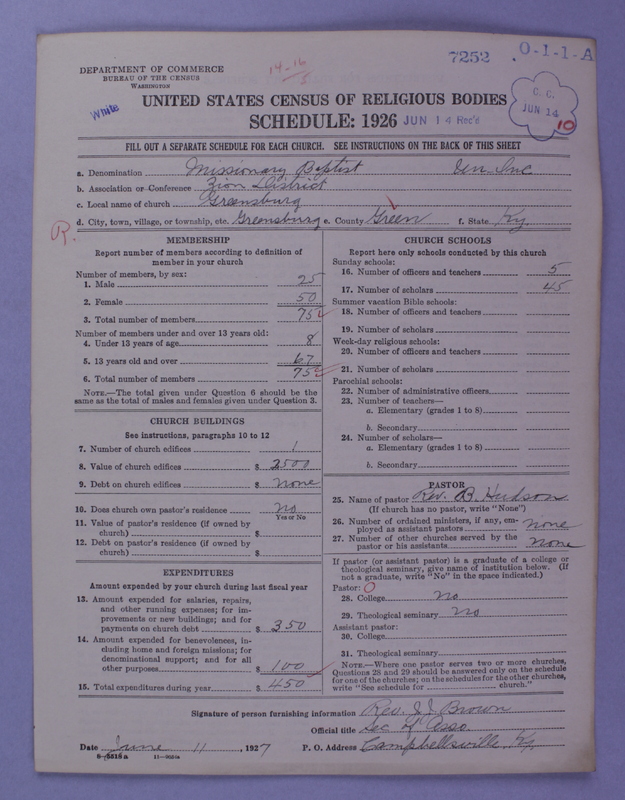 7252 . O-1-1-A
DEPARTMENT OF COMMERCE
BUREAU OF THE CENSUS
WASHINGTON
14-16
5
White
C. C.
JUN 14
10
UNITED STATES CENSUS OF RELIGIOUS BODIES
SCHEDULE: 1926 JUN 14 Rec'd
FILL OUT A SEPARATE SCHEDULE FOR EACH CHURCH. SEE INSTRUCTIONS ON THE BACK OF THIS SHEET
a. Denomination Missionary Baptist Un-Inc
b. Association or Conference Zion District
c. Local name of church Greensburg
d. City, town, village, or township, etc. Greensburg e. County Green f. State Ky.
R.
MEMBERSHIP
Report number of members according to definition of
member in your church
Number of members, by sex:
1. Male 25
2. Female 50
3. Total number of members 75
Number of members under and over 13 years old:
4. Under 13 years of age 8
5. 13 years old and over 67
6. Total number of members 75
NOTE.—The total given under Question 6 should be the
same as the total of males and females given under Question 3.
CHURCH BUILDINGS
See instructions, paragraphs 10 to 12
7. Number of church edifices 1
8. Value of church edifices $ 2500
9. Debt on church edifices $ none
10. Does church own pastor's residence no
Yes or No
11. Value of pastor's residence (if owned by
church) $
12. Debt on pastor's residence (if owned by
church) $
EXPENDITURES
Amount expended by your church during last fiscal year
13. Amount expended for salaries, repairs,
and other running expenses; for im-
provements or new buildings; and for
payments on church debt $ 350
14. Amount expended for benevolences, in-
cluding home and foreign missions; for
denominational support; and for all
other purposes $ 100
15. Total expenditures during year $ 450
CHURCH SCHOOLS
Report here only schools conducted by this church
Sunday schools:
16. Number of officers and teachers 5
17. Number of scholars 45
Summer vacation Bible schools:
18. Number of officers and teachers
19. Number of scholars
Week-day religious schools:
20. Number of officers and teachers
21. Number of scholars
Parochial schools:
22. Number of administrative officers
23. Number of teachers—
a. Elementary (grades 1 to 8)
b. Secondary
24. Number of scholars—
a. Elementary (grades 1 to 8)
b. Secondary
PASTOR
25. Name of pastor Rev. B. Hudson
(If church has no pastor, write "None")
26. Number of ordained ministers, if any, em-
ployed as assistant pastors none
27. Number of other churches served by the
pastor or his assistants none
If pastor (or assistant pastor) is a graduate of a college or
theological seminary, give name of institution below. (If
not a graduate, write "No" in the space indicated.)
Pastor: O
28. College no
29. Theological seminary no
Assistant pastor:
30. College
31. Theological seminary
NOTE.—Where one pastor serves two or more churches,
Questions 28 and 29 should be answered only on the schedule
for one of the churches; on the schedules for the other churches,
write "See schedule for church."
Signature of person furnishing information Rev. J. J. Brown
Official title Sec of Asso.
Date June 11, 1927 P. O. Address Campbellsville, Ky.
8-5518a 11-9024a